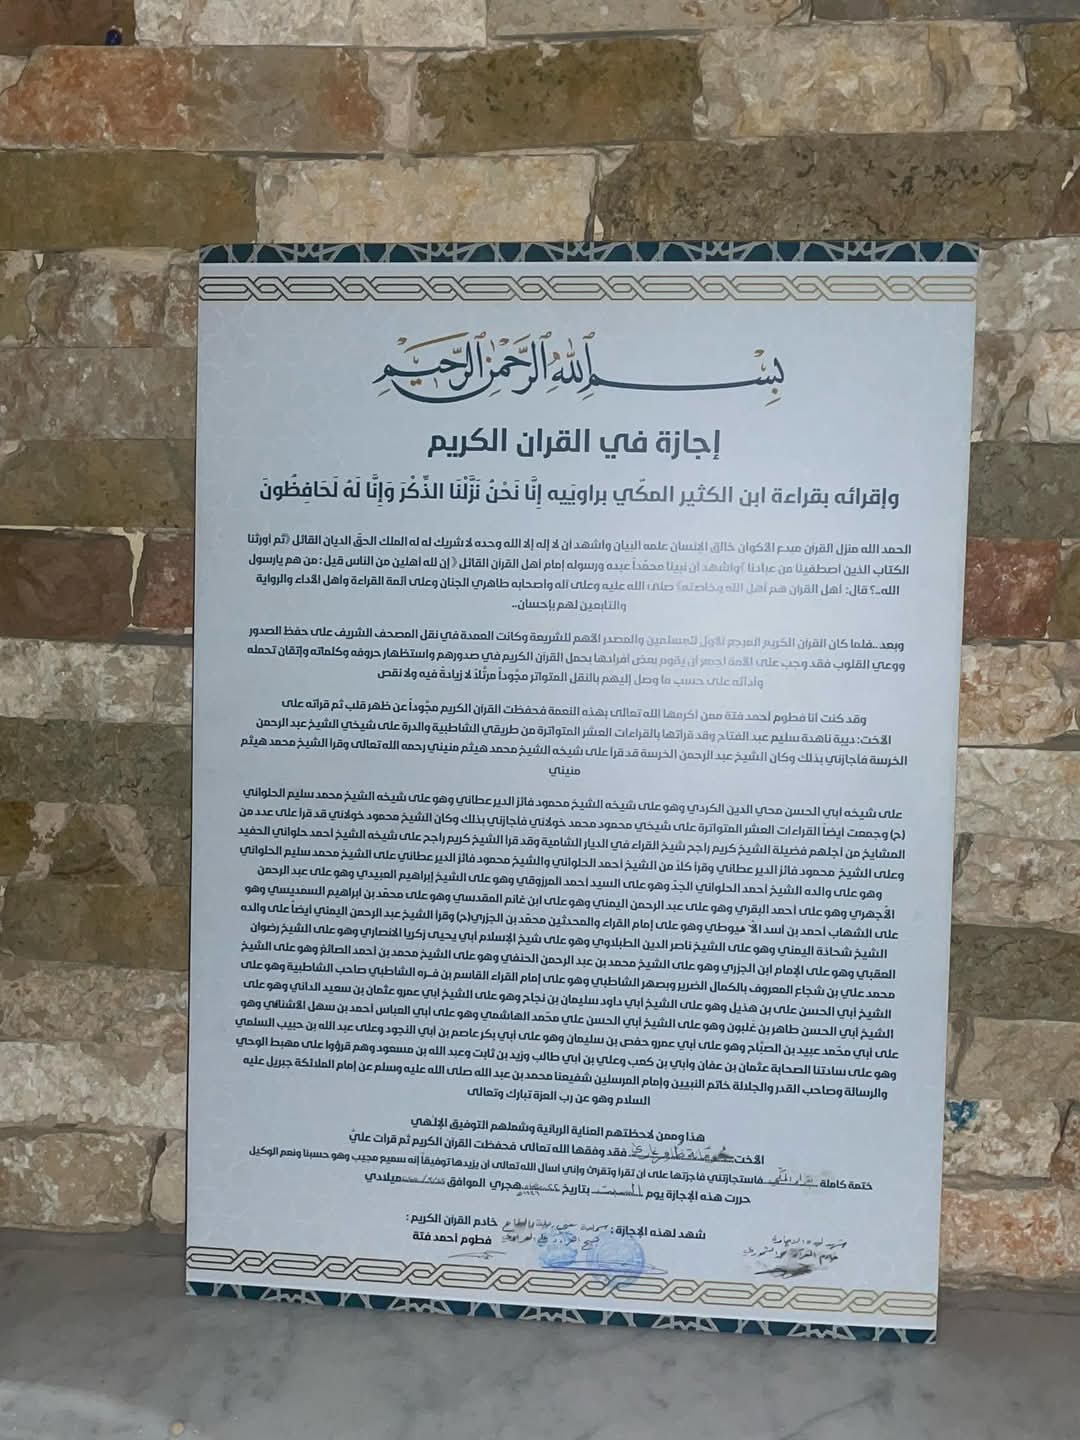 بِسْمِ اللهِ الرَّحْمٰنِ الرَّحِيْمِ
إجازة في القران الكريم
وإقرائه بقراءة ابن الكثير المكّي براوتيه إِنَّا نَحْنُ نَزَّلْنَا الذِّكْرَ وَإِنَّا لَهُ لَحَافِظُونَ
الحمد الله منزل القرآن مبدع الأكوان خالق الإنسان علمه البيان واشهد أن لا إله إلا الله وحده لا شريك له له الملك الحقّ الديان القائل (ثم أورثنا
الكتاب الذين اصطفينا من عبادنا )واشهد أن نبينا محمّداً عبده ورسوله إمام أهل القرآن القائل ( إن لله أهلين من الناس قيل : من هم يارسول
الله..؟ قال: أهل القرآن هم أهل الله وخاصته) صلى الله عليه وعلى آله وأصحابه طاهري الجنان وعلى أئمة القراءة وأهل الأداء والرواية
والتابعين لهم بإحسان..
وبعد..فلما كان القرآن الكريم المرجع الأول للمسلمين والمصدر الأهم للشريعة وكانت العمدة في نقل المصحف الشريف على حفظ الصدور
ووعي القلوب فقد وجب على الأمة اجمع أن يقوم بعض أفرادها بحمل القرآن الكريم في صدورهم واستظهار حروفه وكلماته وإتقان تحمله
وأدائه على حسب ما وصل إليهم بالنقل المتواتر مجّوداً مرتّلاً لا زيادةً فيه ولا نقص
وقد كنت أنا فطوم أحمد فتة ممن أكرمها الله تعالى بهذه النعمة فحفظت القرآن الكريم مجّوداً عن ظهر قلب ثم قرأته على
الأخت: ديبة ناهدة سليم عبد الفتاح وقد قرأتها بالقراءات العشر المتواترة من طريقي الشاطبية والدرة على شيخي الشيخ عبد الرحمن
الخرسة فأجازني بذلك وكان الشيخ عبد الرحمن الخرسة قد قرأ على شيخه الشيخ محمد هيثم منيني رحمه الله تعالى وقرأ الشيخ محمد هيثم
منيني
على شيخه أبي الحسن محي الدين الكردي وهو على شيخه الشيخ محمود فائز الدير عطاني وهو على شيخه الشيخ محمد سليم الحلواني
(ح) وجمعت أيضاً القراءات العشر المتواترة على شيخي محمود محمد خولاني فأجازني بذلك وكان الشيخ محمود خولاني قد قرأ على عدد من
المشايخ من أجلهم فضيلة الشيخ كريم راجح شيخ القراء في الديار الشامية وقد قرأ الشيخ كريم راجح على شيخه الشيخ أحمد حلواني الحفيد
وعلى الشيخ محمود فائز الدير عطاني وقرأ كلاً من الشيخ أحمد الحلواني والشيخ محمود فائز الدير عطاني على الشيخ محمد سليم الحلواني
وهو على والده الشيخ أحمد الحلواني الجدّ وهو على السيد أحمد المرزوقي وهو على الشيخ إبراهيم العبيدي وهو على عبد الرحمن
الأجهري وهو على أحمد البقري وهو على عبد الرحمن اليمني وهو على ابن غانم المقدسي وهو على محمّد بن ابراهيم السمديسي وهو
على الشهاب أحمد بن أسد الأميوطي وهو على إمام القراء والمحدثين محمّد بن الجزري(ح) وقرأ الشيخ عبد الرحمن اليمني أيضاً على والده
الشيخ شحاذة اليمني وهو على الشيخ ناصر الدين الطبلاوي وهو على شيخ الإسلام أبي يحيى زكريا الانصاري وهو على الشيخ رضوان
العقبي وهو على الإمام ابن الجزري وهو على الشيخ محمد بن عبد الرحمن الحنفي وهو على الشيخ محمد بن أحمد الصائغ وهو على الشيخ
محمد علي بن شجاع المعروف بالكمال الضرير وبصهر الشاطبي وهو على إمام القراء القاسم بن فره الشاطبي صاحب الشاطبية وهو على
الشيخ أبي الحسن على بن هذيل وهو على الشيخ أبي داود سليمان بن نجاح وهو على الشيخ أبي عمرو عثمان بن سعيد الداني وهو على
الشيخ أبي الحسن طاهر بن غلبون وهو على الشيخ أبي الحسن علي محّمد الهاشمي وهو على أبي العباس أحمد بن سهل الأشناني وهو
على أبي محّمد عبيد بن الصبّاح وهو على أبي عمرو حفص بن سليمان وهو على أبي بكر عاصم بن أبي النجود وعلى عبد الله بن حبيب السلمي
وهو على سادتنا الصحابة عثمان بن عفان وأبي بن كعب وعلي بن أبي طالب وزيد بن ثابت وعبد الله بن مسعود وهم قرؤوا على مهبط الوحي
والرسالة وصاحب القدر والجلالة خاتم النبيين وإمام المرسلين شفيعنا محمد بن عبد الله صلى الله عليه وسلم عن إمام الملائكة جبريل عليه
السلام وهو عن رب العزة تبارك وتعالى
هذا وممن لاحظتهم العناية الربانية وشملهم التوفيق الإلهي
الأخت فقد وفقها الله تعالى فحفظت القرآن الكريم ثم قرأت عليّ
ختمة كاملة فاستجازتني فأجزتها على أن تقرأ وتقرئ وإني أسأل الله تعالى أن يزيدها توفيقاً إنه سميع مجيب وهو حسبنا ونعم الوكيل
حررت هذه الإجازة يوم السبت بتاريخ هجري الموافق ميلادي
شهد لهذه الإجازة : خادم القرآن الكريم :
فطوم أحمد فتة